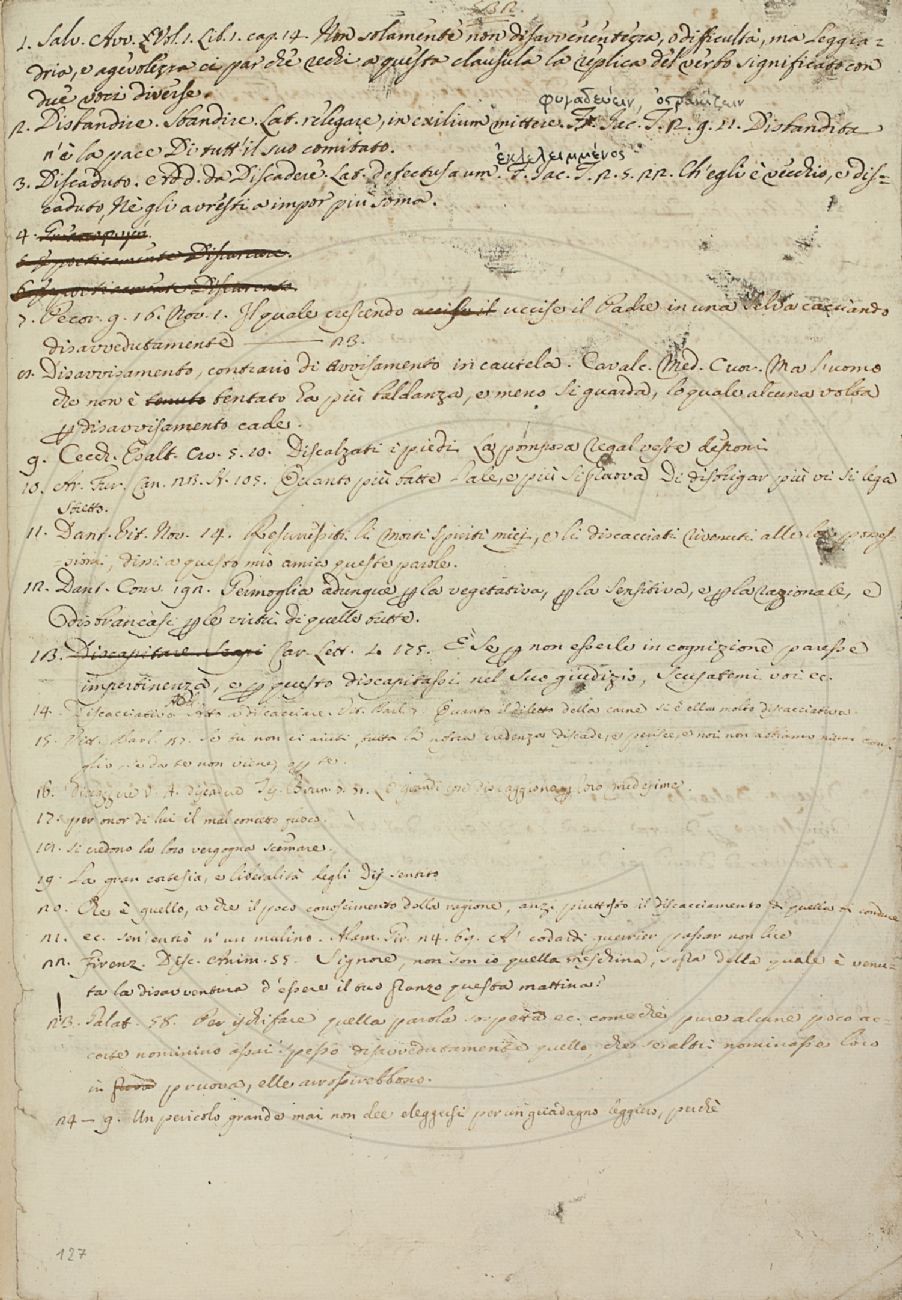 1. Salv. Avv. Vol. 1. Lib. 1. cap. 14. Non solamente non disavvenentezza, o difficultà, ma leggia=
dria, e agevolezza ci par che rechi a questa clausula la replica del verbo significato con
due voci diverse.
φυγαδεύειν, ὀστρακίζειν
2. Disbandire. Sbandire. Lat. religare, in exilium mittere. Fr. Jac. T. 2. 9. 21. Disbandita
n'è la pace Di tutt'il suo comitato.
ἐκλελειμμένος
3. Discaduto. add. da Discadere. Lat. defectus a um. F. Jac. T. 2. 5. 22. Ch'egli è vecchio, e dis=
caduto, Nè gli avresti a impor più soma.
4.
5. Disturbare.
6.
7. Pecor. g. 16. Nov. 1. Il quale crescendo uccise il uccise il Padre in una selva cacciando
disavvedutamente — 23.
8. Disavvisamento, contrario di Avvisamento incautela. Cavalc. Med. Cuor. Ma l'uomo
che non è tenuto tentato ha più baldanza, e meno si guarda, lo quale alcuna volta
p disavvisamento cade.
9. Cecch. Esalt. Cro. 5. 10. Discalzati i piedi La pomposa regal veste deponi
10. Ar. Fur. Can. 23. St. 105. Quanto più batte l'ale, e più si prova Di disbrigar più vi si lega
stretto.
11. Dant. Vit. Nov. 14. Resurressiti li morti spiriti miei, e li discacciati rivenuti alle loro posses=
sioni, dissi a questo mio amico queste parole.
12. Dant. Conv. 192. Germoglia adunque p la vegetativa, p la sensitiva, e p la razionale, e
disbrancasi p le virtù di quelle tutte.
13. Discapitare. Scapi Car. Lett. 2. 175. E se p non esserle in cognizione paresse
impertinenza, e p questo discapitassi nel suo giudizio, scusatemi voi ec.
14. Discacciativo add. Atto a discacciare. Vit. Barl. 7. Quanto il diletto della carne si è elli molto discacciativo.
15. Vitt. Barl. 27. Se tu non ci aiuti, tutta la nostra credenza discade, e perisce, e noi non abbiamo niun consi=
glio se da te non viene, e p te.
16. V. A. discadere loro medesime.
17. per onor di lui il mal concetto fuoco.
18. si credono la loro vergogna scemare.
19. La gran cortesia, e liberalità degli Dij sentito
20. Che è quello, a che il poco conoscimento della ragione, anzi piuttosto il discacciamento di quella si conduce
21. ec. sen' entrò n' un mulino. Alam. Gir. 24. 69. A' codardi guerrier passar non lice
22. Firenz. Disc. Anim. 55. Signore, non son io quella meschina, sopra della quale è venu=
ta la disavventura d'essere il tuo pranzo questa mattina?
23. Galat. 58. Per ischifare quella parola sospetta ec. comechè pure alcune poco ac=
corte nominino assai spesso disavvedutamente quello, che se altri nominasse loro
in pruova, elle arrossirebbono.
24 — 9. Un pericolo grande mai non dee eleggersi per un guadagno leggiero, perchè
127